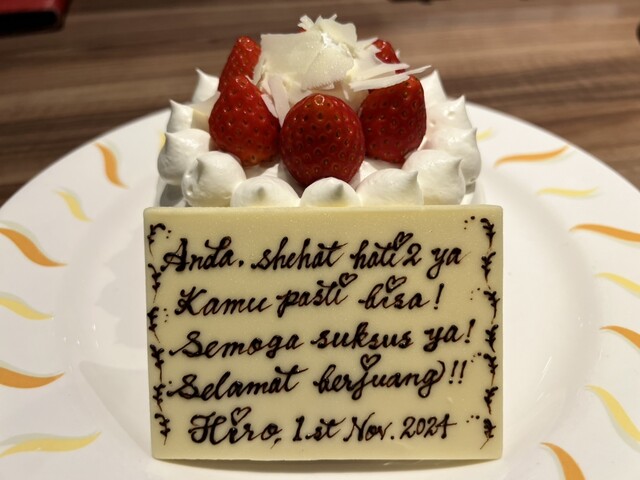 Anda. shehat hati2 ya
Kamu pasti bisa!
Semoga suksus ya!
Selamat berjuang)!!
Hiro, 1st Nov. 2024